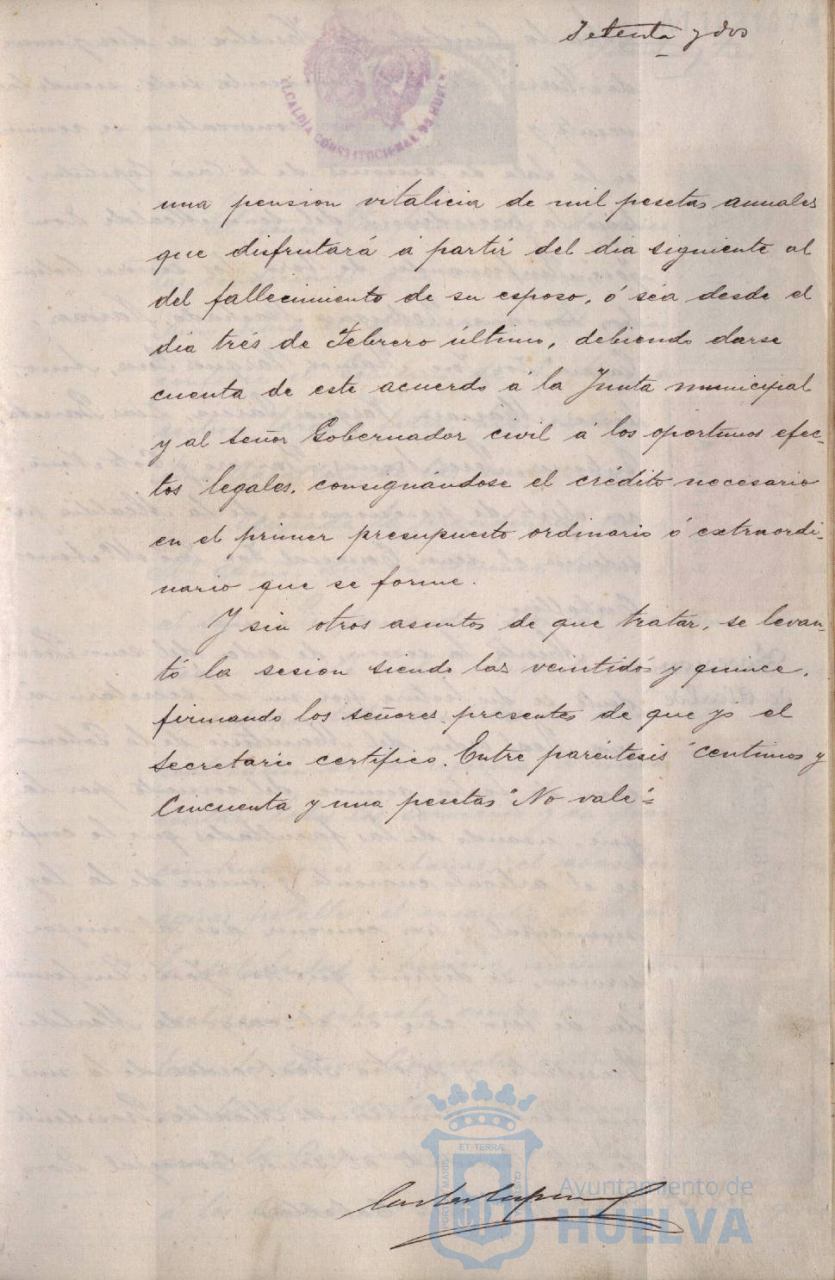 Setenta y dos
ALCALDÍA CONSTITUCIONAL DE HUELVA
una pension vitalicia de mil pesetas anuales
que disfrutará á partir del dia siguiente al
del fallecimiento de su esposo, ó séa desde el
dia trés de Febrero último, debiendo darse
cuenta de este acuerdo á la Junta municipal
y al señor Gobernador civil á los oportunos efec-
tos legales, consignándose el crédito necesario
en el primer presupuesto ordinario ó extraordi-
nario que se forme.
Y sin otros asuntos de que tratar, se levan-
tó la sesion siendo las veintidós y quince,
firmando los señores presentes de que yo el
Secretario certifico. Entre paréntesis "centimos y
Cincuenta y una pesetas" No vale=
ET TERRÆ
Ayuntamiento de
HUELVA